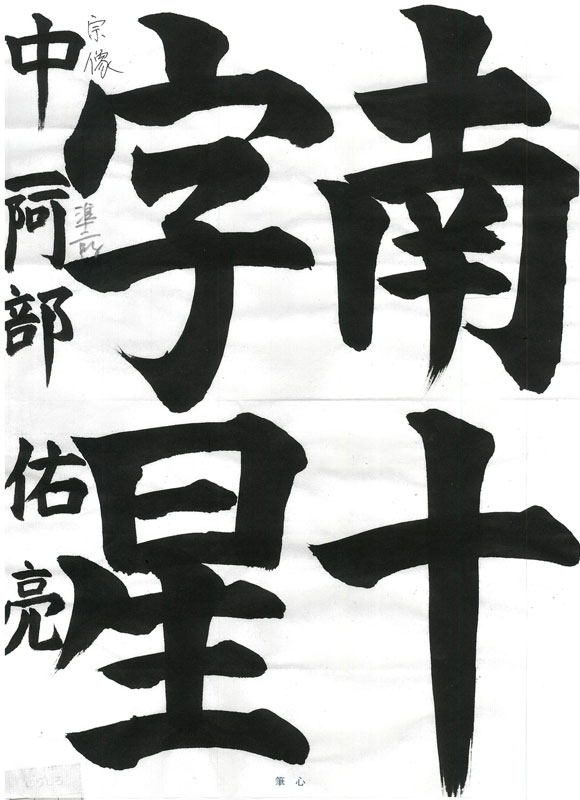 南十
字星
中一 阿部 佑亮
宗像
準二段
筆心